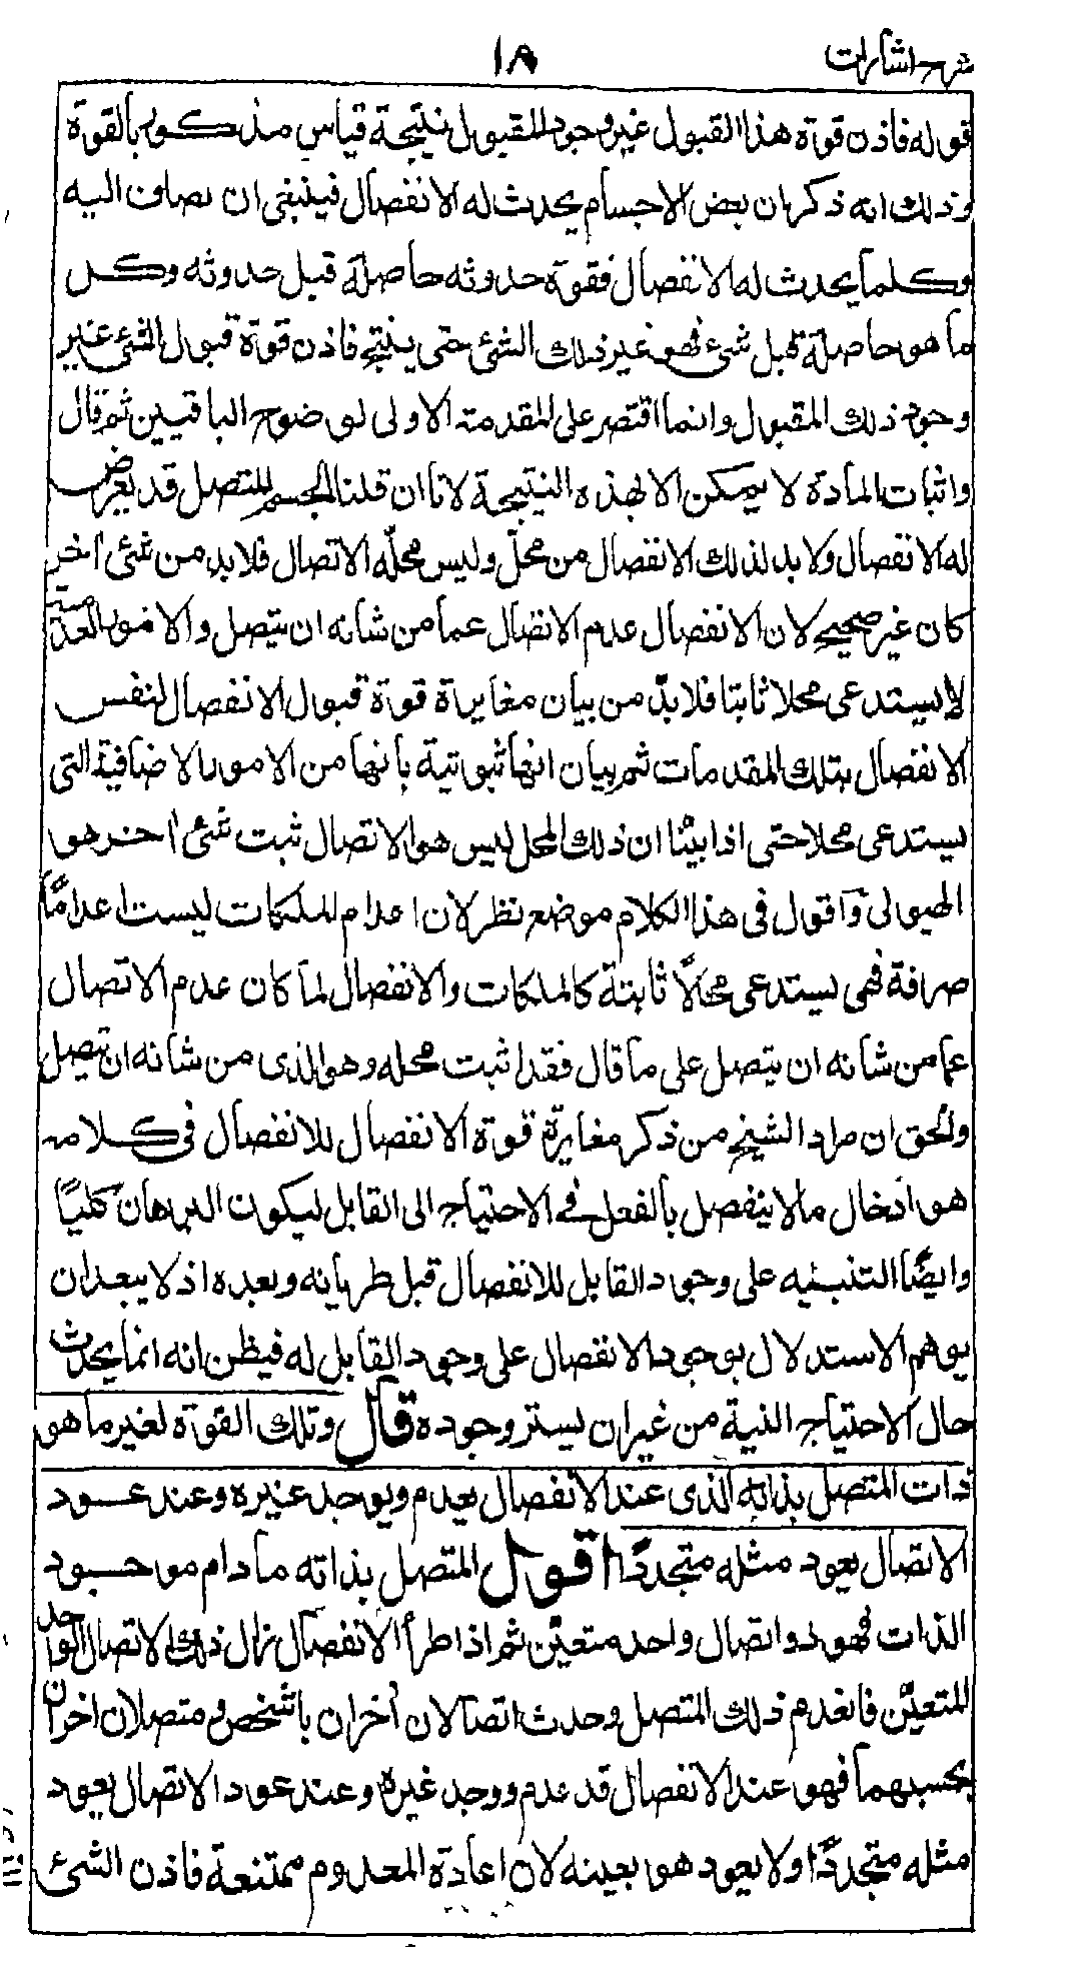 شرح اشارات
١٨
قوله فاذن قوة هذا القبول غير وجود المقبول نتيجة قياس مذكور بالقوة
وذلك انه ذكر ان بعض الاجسام يحدث له الانفصال فينبغى ان يضاف اليه
وكلما يحدث له الانفصال فقوة حدوثه حاصلة قبل حدوثه وكل
ما هو حاصلة قبل شئ فهو غير ذلك الشئ حتى ينتج فاذن قوة قبول الشئ غير
وجود ذلك المقبول وانما اقتصر على المقدمة الاولى لوضوح الباقيين ثم قال
واثبات المادة لا يمكن الا لهذه النتيجة لانا ان قلنا الجسم المتصل قد يعرض
له الانفصال ولا بد لذلك الانفصال من محلّ وليس محلّه الاتصال فلا بد من شئ آخر
كان غير صحيح لان الانفصال عدم الاتصال عما من شانه ان يتصل والامور العدمية
لا يستدعى محلا ثابتا فلا بدّ من بيان مغايرة قوة قبول الانفصال لنفس
الانفصال بتلك المقدمات ثم بيان انها ثبوتية بانها من الامور الاضافية التى
يستدعى محلا حتى اذا بيّنا ان ذلك المحل ليس هو الاتصال ثبت شئ آخر هو
الهيولى وآقول فى هذا الكلام موضع نظر لان اعدام الملكات ليست اعدامًا
صرافة فهى يستدعى محالّا ثابتة كالملكات والانفصال لما كان عدم الاتصال
عما من شانه ان يتصل على ما قال فقد اثبت محله وهو الذى من شانه ان يتصل
والحق ان مراد الشيخ من ذكر مغايرة قوة الانفصال للانفصال فى كلامه
هو ادخال ما لا ينفصل بالفعل فى الاحتياج الى القابل ليكون البرهان كليًا
وايضًا التنبيه على وجود القابل للانفصال قبل طريانه وبعده اذ لا يبعد ان
يوهم الاستدلال بوجود الانفصال على وجود القابل له فيظن انه انما يحدث
حال الاحتياج اليه من غير ان يستر وجوده قال وتلك القوة لغير ما هو
ذات المتصل بذاته الذى عند الانفصال يعدم ويوجد غيره وعند عود
الاتصال يعود مثله متجددًا اقول المتصل بذاته ما دام موجود
الذات فهو ذو اتصال واحد متعيّن ثم اذا طرأ الانفصال زال ذلك الاتصال الواحد
المتعيّن فانعدم ذلك المتصل وحدث اتصالان أخران بالشخص ومتصلان اخران
بحسبهما فهو عند الانفصال قد عدم ووجد غيره وعند عود الاتصال يعود
مثله متجددًا ولا يعود هو بعينه لان اعادة المعدوم ممتنعة فاذن الشئ